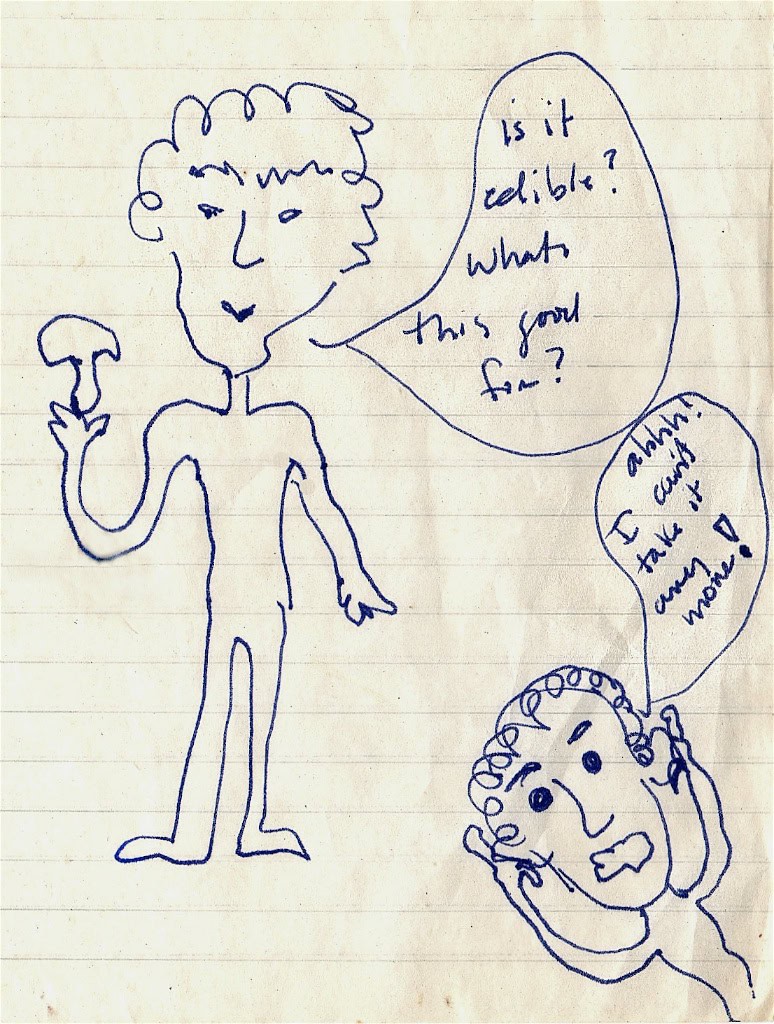 is it
edible?
whats
this good
for?
ahhh!
I can't
take it
any
more!